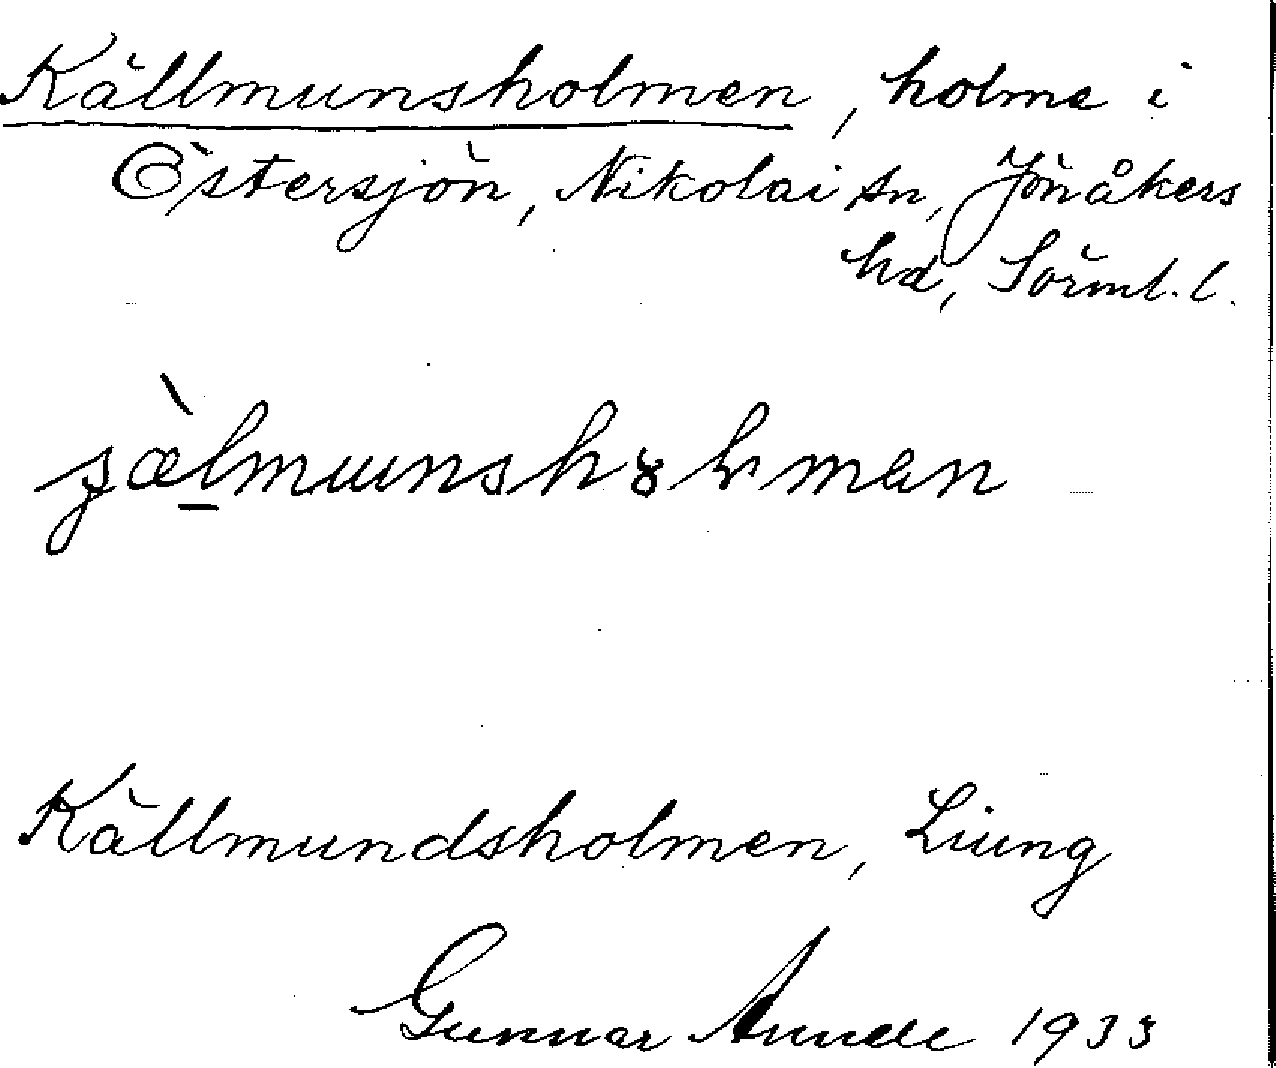 Källmunsholmen, holme i
Östersjön, Nikolai sn, Jönåkers
hd, Sörml. l.
Källmundsholmen, Ljung
Gunnar 1933